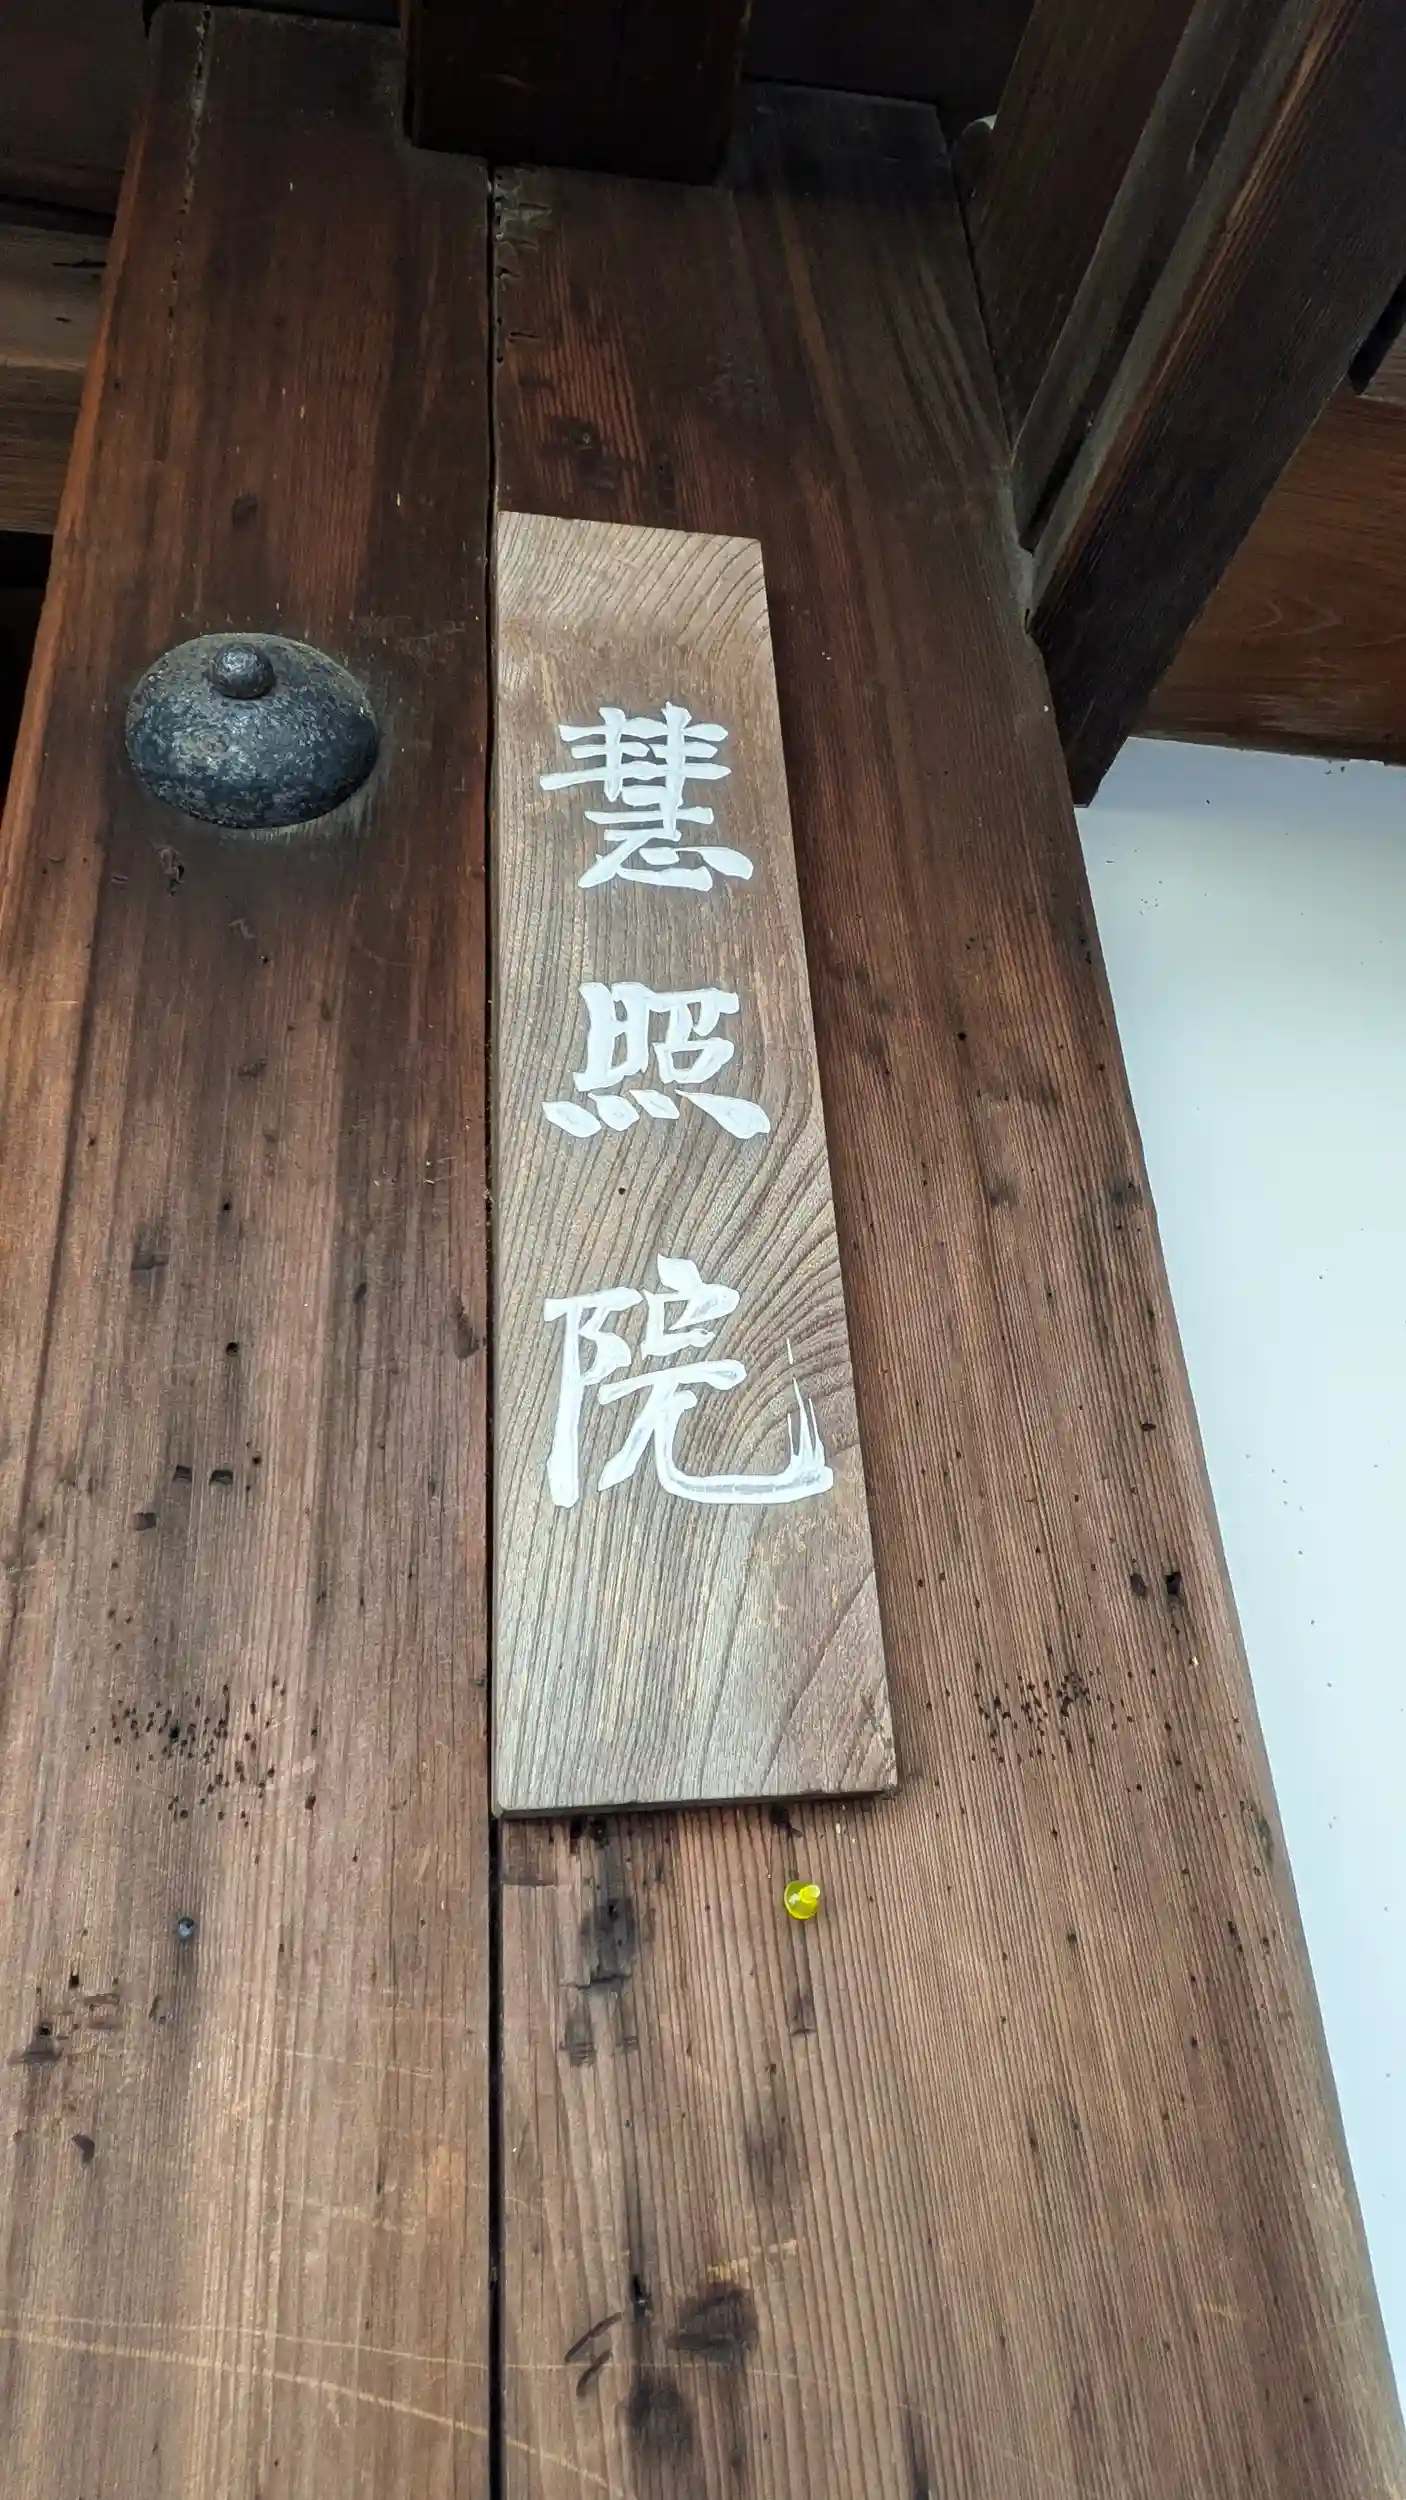 慧照院